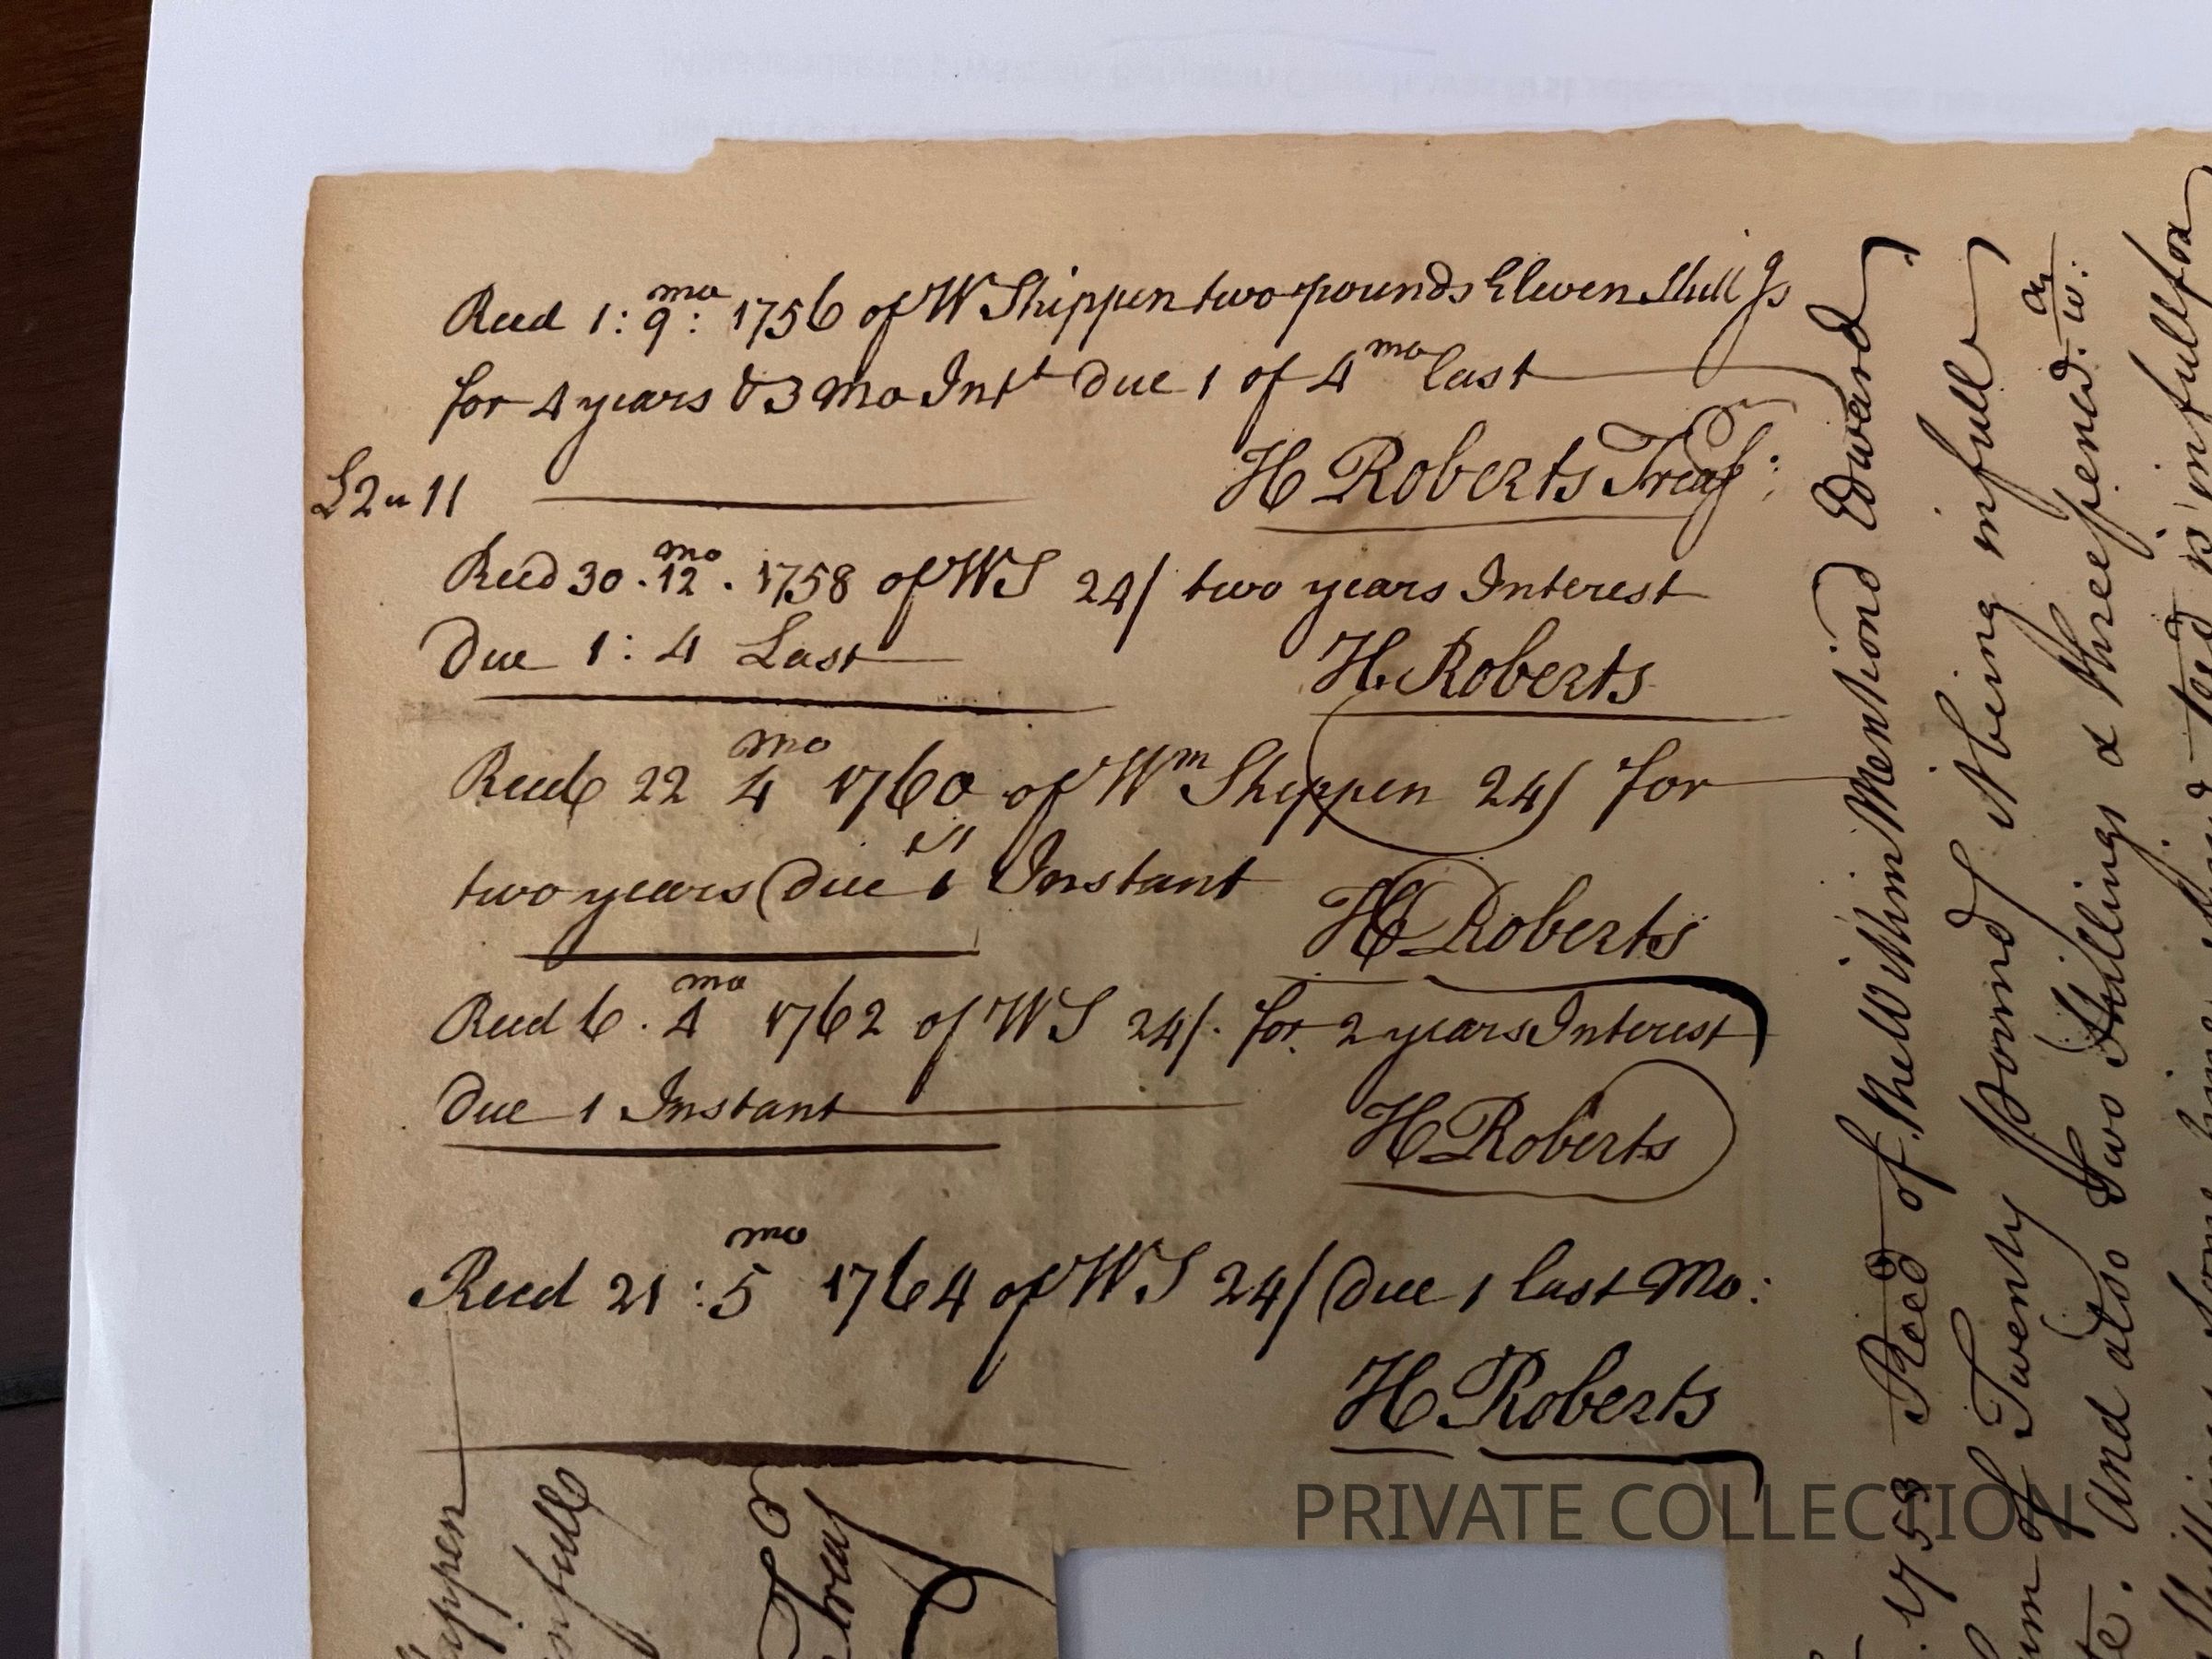 Recd 1: 9mo: 1756 of W Shippen two pounds Eleven Shill gs
for 4 years & 3 Mo Intt Due 1 of 4mo last
£2 " 11
H Roberts Treas:
Recd 30 . 12mo . 1758 of WS 24/ two years Interest
Due 1 : 4 Last
H. Roberts
Recd 22 4mo 1760 of Wm Shippen 24/ for
two years Due 1 Instant
H Roberts
Recd 6 . 4mo 1762 of WS 24/. for 2 years Interest
Due 1 Instant
H Roberts
Recd 21 : 5mo 1764 of WS 24/ Due 1 last Mo:
H Roberts
ippen
infull
Treas
1753 Recd of the Within Mentiond Edward
of Twenty Pound being infull
um of Two Shillings & threepence
And also
in full for
PRIVATE COLLECTION